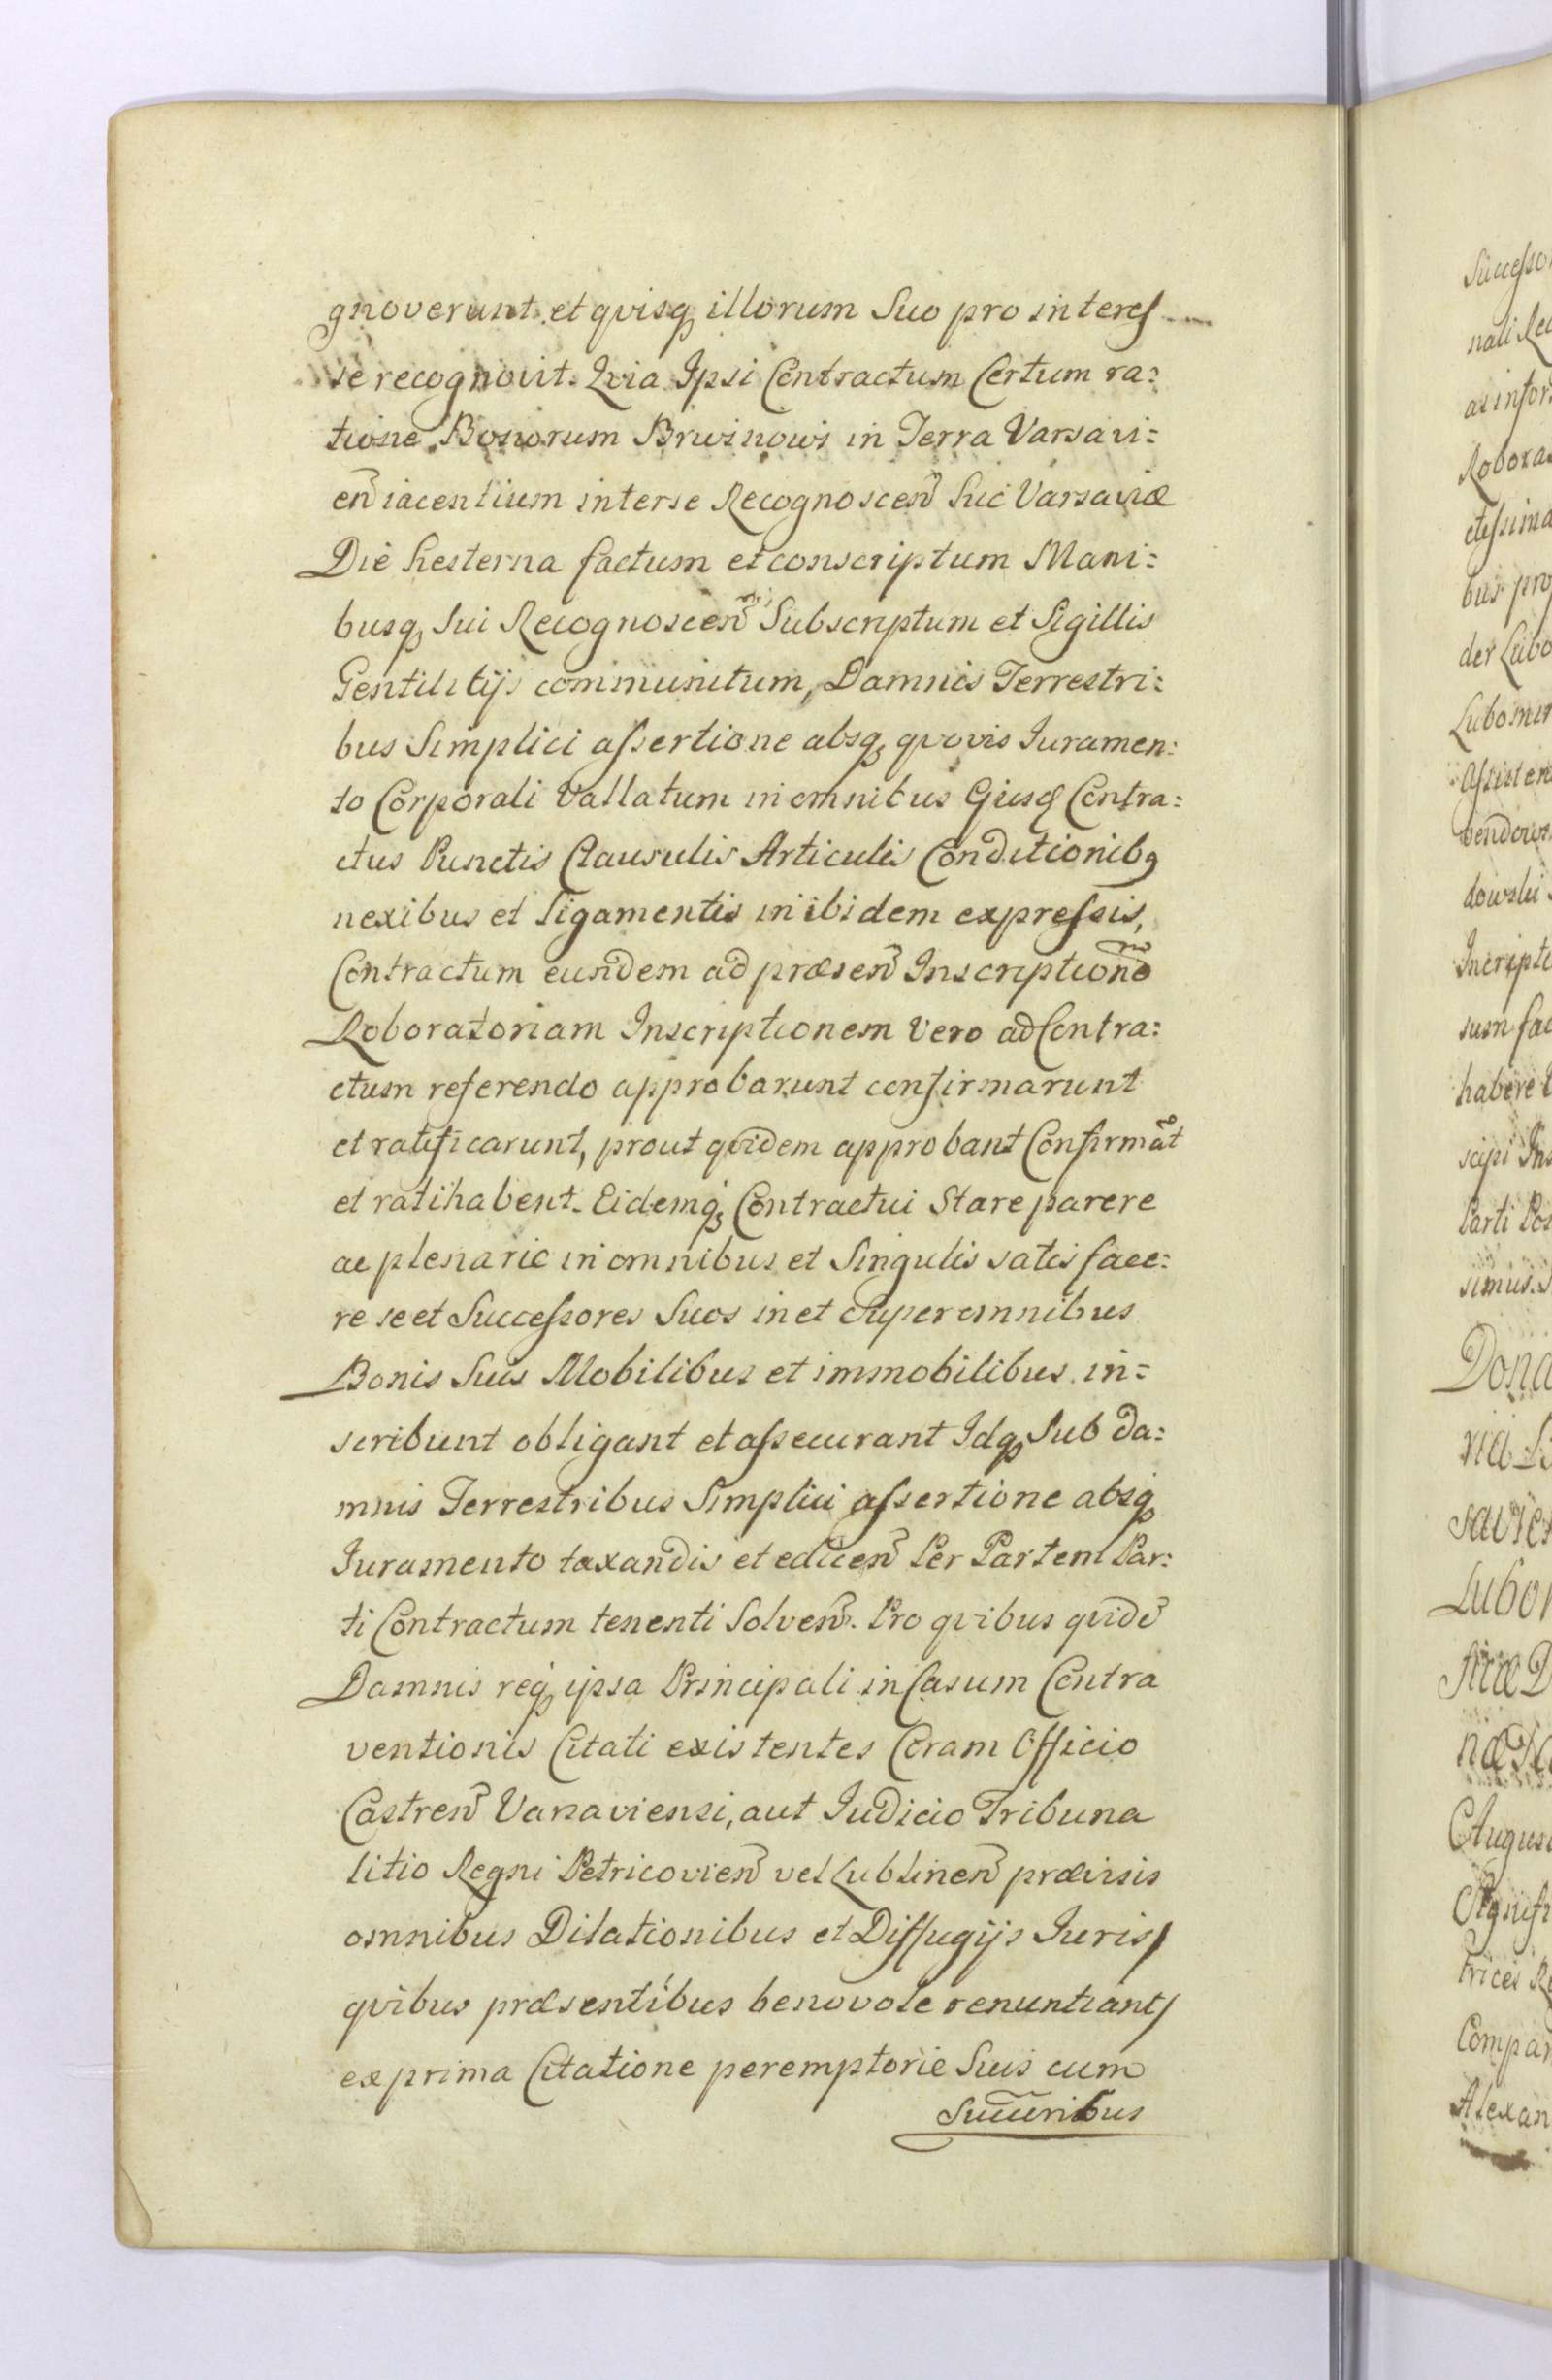 gnoverunt et qvisq illorum Suo pro interes
se recognovit. Qvia Ipsi Contractum Certum ra:
tione Bonorum Brwinowi in Terra Varsavi=
eñ iacentium inter se Recognosceñ hic Varsaviæ
Die hesterna factum et conscriptum Mani=
busq Sui Recognosceñ Subscriptum et Sigillis
Gentilitijs communitum, Damnis Terrestri:
bus Simplici assertione absq qvovis Iuramen:
to Corporali Vallatum in omnibus Ejusq Contra:
ctus Punctis Clausulis Articulis Conditionibq
nexibus et ligamentis inibidem expressis,
Contractum eundem ad præseñ Inscriptione
Roboratoriam Inscriptionem vero ad Contra:
ctum referendo approbarunt confirmarunt
et ratificarunt, prout qvidem approbant Confirmãt
et ratihabent. Eidemq Contractui Stare parere
ac plenarie in omnibus et Singulis satis face:
re se et Successores Suos in et Super omnibus
Bonis Suis Mobilibus et immobilibus in=
scribunt obligant et assecurant Idq Sub da:
mnis Terrestribus Simplici assertione absq
Iuramento taxandis et ediceñ Per Partem Par:
ti Contractum tenenti Solveñ. Pro qvibus qvidẽ
Damnis req ipsa Principali in Casum Contra
ventionis Citati existentes Coram Officio
Castreñ Varsaviensi, aut Iudicio Tribuna
litio Regni Petricovieñ vel Lublineñ præcisis
omnibus Dilationibus et Diffugijs Iuris/
qvibus præsentibus benovole renuntiant/
ex prima Citatione peremptorie Suis cum
Succcribus
Successo
nali Rec
Robora
bus pro
der Lubo
Lubomir
Assisten
sum fac
habere
scipi Ins
Parti Pos
simus.
Dona
ria
savien
Lubom
August
trices
Compar
Alexan